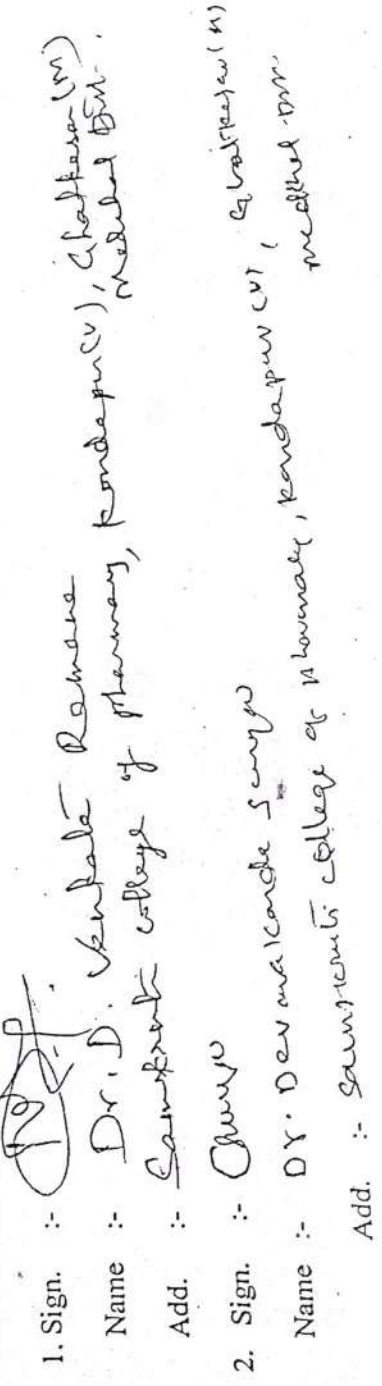 1. Sign. :-
Name :- Dr. D. Venkata Ramana
Add. :- Samskruti college of pharmacy, Kondapur(v), Ghatkesar(m)
Medchal Dist.
2. Sign. :-
Name :- Dr. Devmalcande Sanjya
Add. :- Samskruti college of pharmacy, Kondapur(v), Ghatkesar(m)
medchal